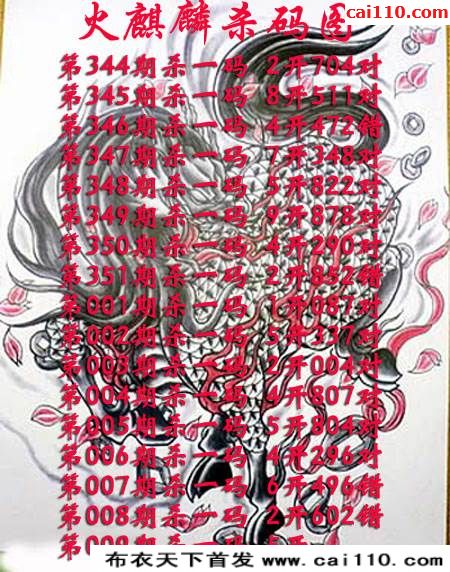 cai110.com
火麒麟杀码图
第344期杀一码 2开704对
第345期杀一码 8开511对
第346期杀一码 4开472错
第347期杀一码 7开348对
第348期杀一码 5开822对
第349期杀一码 9开878对
第350期杀一码 4开290对
第351期杀一码 2开852错
第001期杀一码 1开087对
第002期杀一码 5开337对
第003期杀一码 2开004对
第004期杀一码 4开807对
第005期杀一码 5开804对
第006期杀一码 4开296对
第007期杀一码 6开496错
第008期杀一码 2开602错
布衣天下首发 www.cai110.com